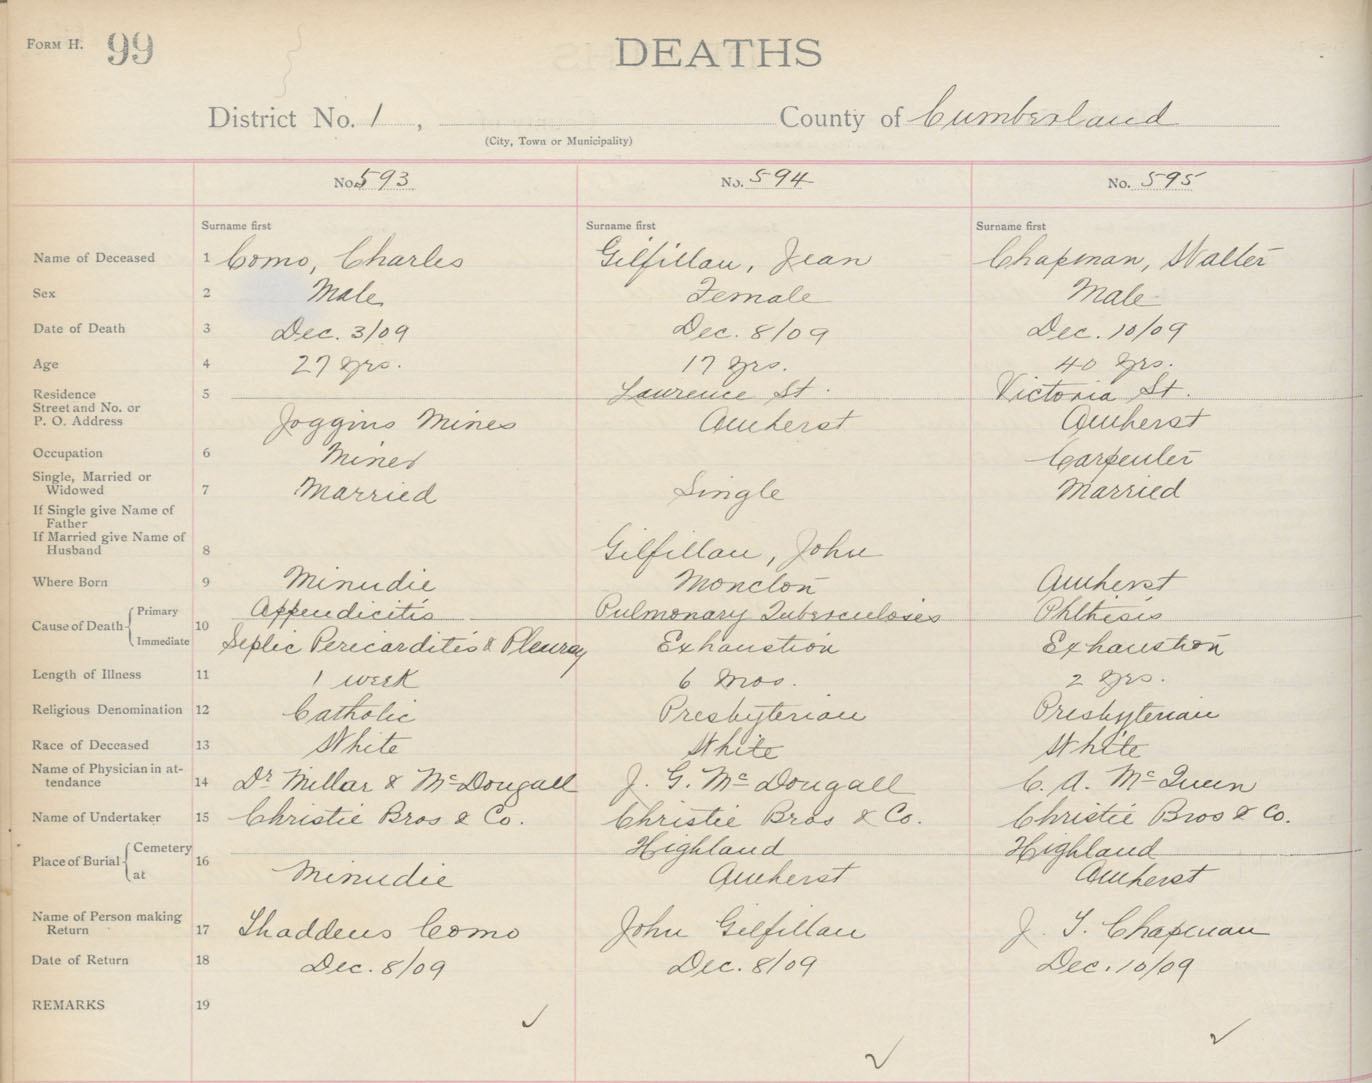 FORM H. 99
DEATHS
District No. 1, County of Cumberland
(City, Town or Municipality)
No. 593 No. 594 No. 595
Surname first Surname first Surname first
Name of Deceased 1 Como, Charles Gilfillan, Jean Chapman, Walter
Sex 2 Male Female Male
Date of Death 3 Dec. 3/09 Dec. 8/09 Dec. 10/09
Age 4 27 yrs. 17 yrs. 40 yrs.
Residence 5 Lawrence St. Victoria St.
Street and No. or
P. O. Address Joggins Mines Amherst Amherst
Occupation 6 Miner Carpenter
Single, Married or
Widowed 7 Married Single Married
If Single give Name of
Father
If Married give Name of
Husband 8 Gilfillan, John
Where Born 9 Minudie Moncton Amherst
Cause of Death 10 Primary Appendicitis Pulmonary Tuberculosis Phthisis
Immediate Septic Pericarditis & Pleurisy Exhaustion Exhaustion
Length of Illness 11 1 week 6 mos. 2 yrs.
Religious Denomination 12 Catholic Presbyterian Presbyterian
Race of Deceased 13 White White White
Name of Physician in at-
tendance 14 Dr Millar & McDougall J. G. McDougall C. A. McQueen
Name of Undertaker 15 Christie Bros & Co. Christie Bros & Co. Christie Bros & Co.
Place of Burial 16 Cemetery Highland Highland
at Minudie Amherst Amherst
Name of Person making
Return 17 Thaddeus Como John Gilfillan J. T. Chapman
Date of Return 18 Dec. 8/09 Dec. 8/09 Dec. 10/09
REMARKS 19